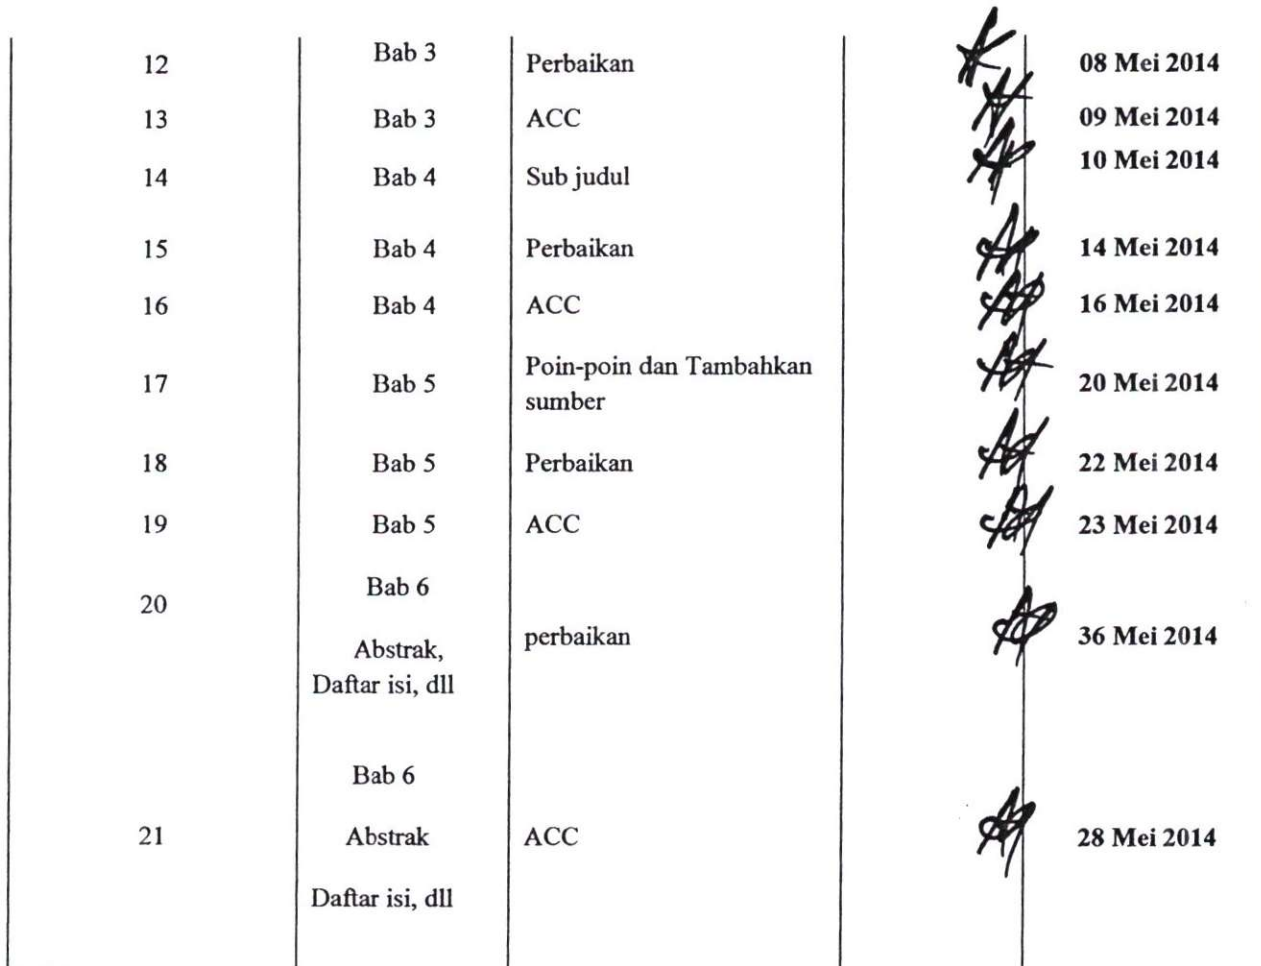 12 Bab 3 Perbaikan 08 Mei 2014
13 Bab 3 ACC 09 Mei 2014
14 Bab 4 Sub judul 10 Mei 2014
15 Bab 4 Perbaikan 14 Mei 2014
16 Bab 4 ACC 16 Mei 2014
17 Bab 5 Poin-poin dan Tambahkan
sumber 20 Mei 2014
18 Bab 5 Perbaikan 22 Mei 2014
19 Bab 5 ACC 23 Mei 2014
20 Bab 6
Abstrak,
Daftar isi, dll perbaikan 36 Mei 2014
Bab 6
21 Abstrak ACC 28 Mei 2014
Daftar isi, dll